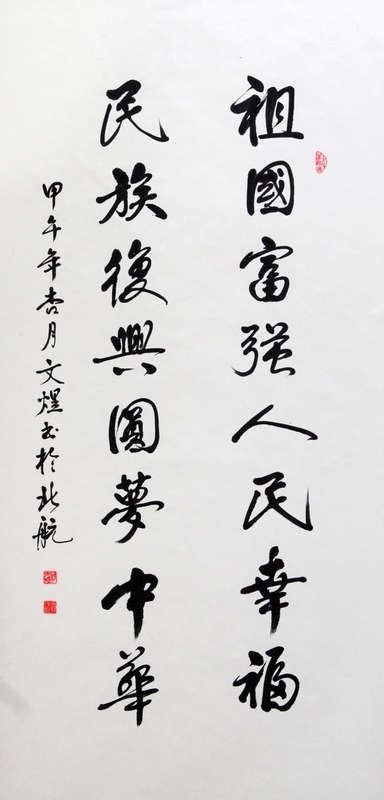 祖國富强人民幸福
民族復興圓夢中華
甲午年杏月文煜书於北航